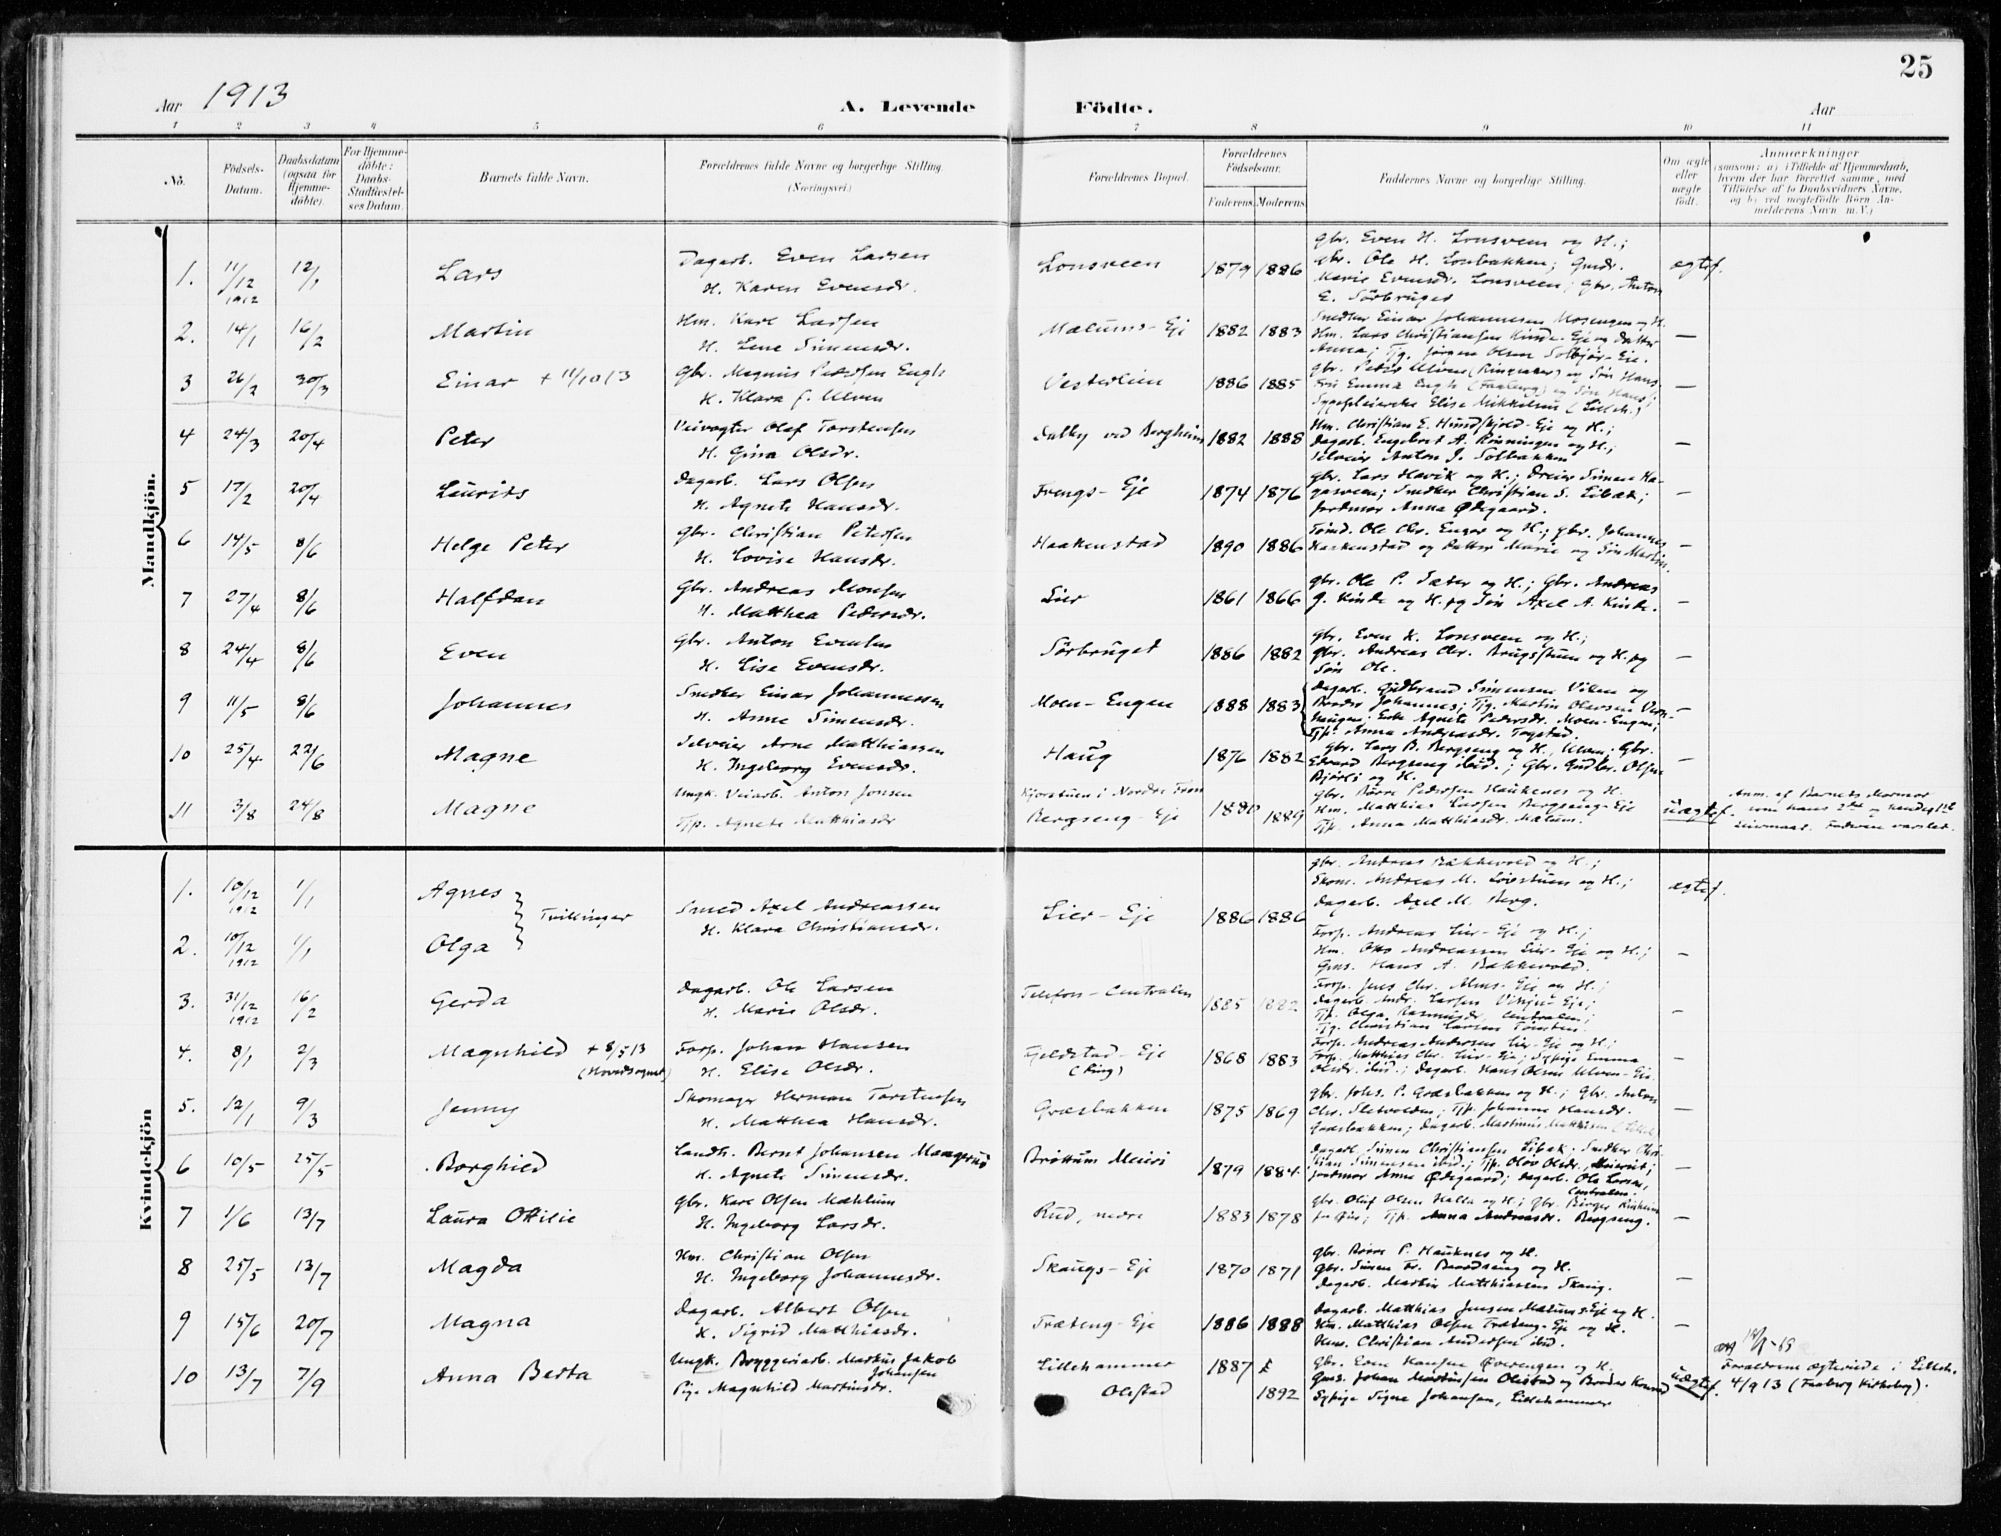 25
Aar 1913
A. Levende Födte.
Aar
1 2 3 4 5 6 7 8 9 10 11
No.
Födsels-Datum.
Daabsdatum (ogsaa for Hjemme-döbte).
For Hjemme-döbte: Daabs-Stadfæstel-ses Datum.
Barnets fulde Navn.
Forældrenes fulde Navne og borgerlige Stilling. (Næringsvei)
Forældrenes Bopæl.
Forældrenes Födselsaar.
Faderens. Moderens.
Faddernes Navne og borgerlige Stilling.
Om ægte eller uægte födt.
Anmærkninger
(saasom: a) i Tilfælde af Hjemmedaab, hvem der har forrettet samme, med Tilföielse af to Daabsvidners Navne, og b) ved uægtefödte Börn An-melderens Navn m.V.)
Mandkjön.
1. 11/12 1912 12/1 Lars
Dagarb. Even Larsen
H. Karen Evensdr.
Lonsveen 1879 1886
Gbr. Even H. Lonsveen og H.;
Gbr. Ole H. Lonbakken; Gmdr.
Marie Evensdr. Lonsveen; Gbr. Anton
E. Sörbruget
ægtef.
2. 14/1 16/2 Martin
Hm. Karl Larsen
H. Lene Simensdr.
Mælums-Eje 1882 1883
Snedker Einar Johannesen Moengen og H.
Hm. Lars Christiansen Kinde-Eje og Datter
Anna; Tjg. Jörgen Olsen Solbjör-Eie.
—
3 26/2 30/3 Einar + 11/10 13
Gbr. Magnus Petersen Engh
H. Klara J. Ulven
Vesterlien 1886 1885
Gbr. Peter Ulven (Ringsaker) og Sön Hans
Fru Emma Engh (Faaberg) og Sön Hans;
Sygepleierske Elise Mikkelsen (Lilleh.)
—
4 24/3 20/4 Peter
Veivogter Olaf Torstensen
H. Gina Olsdr.
Dalby ved Bergheim 1882 1888
Hm. Christian E. Hundskjold-Eje og H.;
Dagarb. Engebret A. Rönningen og H.;
Selveier Anton J. Solbakken
—
5 17/2 20/4 Laurits
Dagarb. Lars Olsen
H. Agnete Hansdr.
Frengs-Eje 1874 1876
Gbr. Lars Havik og H.; Dreier Simen Ha-
gasveen; Snedker Christian S. Libæk;
Jordmor Anna Ødegaard.
—
6 14/5 8/6 Helge Peter
Gbr. Christian Petersen
H. Lovise Hansdr.
Haakenstad 1890 1886
Tömd. Ole Chr. Enger og H.; Gbr. Johannes
Haakenstad og Datter Marie og Sön Martin.
—
7 27/4 8/6 Halfdan
Gbr. Andreas Monsen
H. Matthea Pedersdr.
Lier 1861 1866
Gbr. Ole P. Sæter og H.; Gbr. Andreas
J. Kinde og H. og Sön Axel A. Kinde.
—
8 24/4 8/6 Even
Gbr. Anton Evensen
H. Lise Evensdr.
Sörbruget 1886 1882
Gbr. Even H. Lonsveen og H.;
Gbr. Andreas Chr. Brugsstuen og H. og
Sön Ole.
—
9 11/5 8/6 Johannes
Snedker Einar Johannessen
H. Anne Simensdr.
Moen-Engen 1888 1883
Dagarb. Gudbrand Simensen Viken og
Broder Johannes; Tjg. Martin Olausen
Enke Agnete Pedersdr. Moen-Engen;
Tjp. Anna Andreasdr. Togstad.
—
10 25/4 22/6 Magne
Selveier Arne Matthiassen
H. Ingeborg Evensdr.
Haug 1876 1882
Gbr. Lars B. Bergseng og H., Ulven; Gbr.
Edvard Bergseng ibid.; Gbr. Gudbr. Olsen
Björli og H.
—
11 3/8 24/8 Magne
Ungk. Veiarb. Anton Jonsen
Tjp. Agnete Matthiasdr.
Kjorstuen i Nordre Fron
Bergseng-Eje 1880 1889
Gbr. Börre Pedersen Haukenes og H.
Hm. Matthias Larsen Bergseng-Eje
Tjp. Anna Matthiasdr. Mælum.
uægtef.
Anm. af Barnets Mormor
som hans 2det og hendes 1ste
Leiermaal. Faderen varslet.
Kvindekjön
1. 10/12 1912 1/1 Agnes
Tvillinger
2. 10/12 1912 1/1 Olga
Smed Axel Andreassen
H. Klara Christiansdr.
Lier-Eje 1886 1886
Gbr. Andreas Bakkevold og H.;
Skom. Andreas M. Löistuen og H.;
Dagarb. Axel M. Berg.
ægtef.
Forp. Andreas Lier-Eje og H.;
Hm. Otto Andreassen Lier-Eje og H.;
Gms. Hans A. Bakkevold.
—
3. 31/12 1912 16/2 Gerda
Dagarb. Ole Larsen
H. Marie Olsdr.
Telefon-Centralen 1885 1882
Forp. Jens Chr. Alms-Eje og H.;
Dagarb. Andr. Larsen Eje;
Tjp. Olga Rasmusdr. Centralen;
Tjg. Christian Larsen Tomten.
—
4. 8/1 2/3 Magnhild + 8/5 13
(Hovedsognet)
Forp. Johan Hansen
H. Elise Olsdr.
Fjeldstad-Eje
(Ring) 1868 1883
Forp. Andreas Andersen Lier-Eje og H.;
Forp. Matthias Chr. Lier-Eje; Sypige Emma
Olsdr. ibid.; Dagarb. Hans Olsen Ulven-Eje.
—
5. 12/1 9/3 Jenny
Skomager Herman Torstensen
H. Matthea Hansdr.
Græsbakken 1875 1869
Gbr. Johs. P. Græsbakken og H.; Gbr. Anton
Chr. Sletvolden; Tjp. Johanne Hansdr.
Græsbakken; Dagarb. Martinus Matthisen (Lilleh.)
—
6 10/5 25/5 Borghild
Landh. Bernt Johansen Mangerud
H. Agnete Simensdr.
Bröttum Meieri 1879 1884
Dagarb. Simen Christiansen Libæk; Snedker Chri-
stian Simensen ibid.; Tjp. Olov Olsdr. Meieriet;
Jordmor Anna Ødegaard; Dagarb. Ole Larsen,
Centralen.
—
7 1/6 13/7 Laura Otilie
Gbr. Karl Olsen Mæhlum
H. Ingeborg Larsdr.
Rud, nedre 1883 1878
Gbr. Oluf Olsen Halla og H.; Gbr. Birger
Tjp. Anna Andreasdr. Bergseng.
—
8 25/5 13/7 Magda
Hm. Christian Olsen
H. Ingeborg Johannesdr.
Skaugs-Eje 1870 1871
Gbr. Börre P. Hauknes og H.
Gbr. Simen Fr. Brodseng og H.
Dagarb. Martin Matthiassen Skaug.
—
9 15/6 20/7 Magna
Dagarb. Albert Olsen
H. Sigrid Matthiasdr.
Træteng-Eje 1886 1888
Dagarb. Matthias Jensen Mælums-Eje og H.
Hm. Matthias Olsen Træteng-Eje og H.
Hms. Christian Andersen ibid.
—
10 13/7 7/9 Anna Berta
Ungk. Bryggeriarb. Markus Jakob
Johansen
Pige Magnhild Martinsdr.
Lillehammer
Olestad 1887 & 1892
Gbr. Even Hansen Överengen og H.
Gms. Johan Martinsen Olestad og Broder Konrad
Sypige Signe Johansen, Lillehammer
uægtef.
Forældrene ægteviede i Lilleh.
4/9 13 (Faaberg Kirkebog).